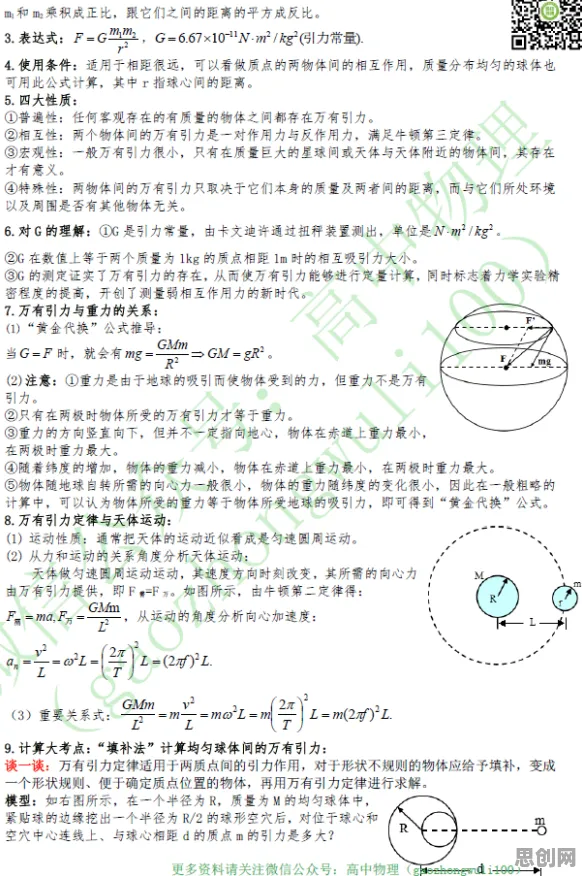 m₁和 m₂乘积成正比，跟它们之间的距离的平方成反比。
3.表达式：F=G m₁m₂/r²，G=6.67×10⁻¹¹N·m²/kg²(引力常量).
4.使用条件：适用于相距很远，可以看做质点的两物体间的相互作用，质量分布均匀的球体也
可用此公式计算，其中 r 指球心间的距离。
5.四大性质：
①普遍性：任何客观存在的有质量的物体之间都存在万有引力。
②相互性：两个物体间的万有引力是一对作用力与反作用力，满足牛顿第三定律。
③宏观性：一般万有引力很小，只有在质量巨大的星球间或天体与天体附近的物体间，其存在
才有意义。
④特殊性：两物体间的万有引力只取决于它们本身的质量及两者间的距离，而与它们所处环境
以及周围是否有其他物体无关。
6.对G的理解：①G是引力常量，由卡文迪许通过扭秤装置测出，单位是N·m²/kg²。
②G在数值上等于两个质量为1kg的质点相距1m时的相互吸引力大小。
③G的测定证实了万有引力的存在，从而使万有引力能够进行定量计算，同时标志着力学实验精
密程度的提高，开创了测量弱相互作用力的新时代。
7.万有引力与重力的关系：
(1)“黄金代换”公式推导：
当G=F 时，就会有mg=GMm/R²⇒GM=gR²。
(2)注意：①重力是由于地球的吸引而使物体受到的力，但重力不是万有
引力。
②只有在两极时物体所受的万有引力才等于重力。
③重力的方向竖直向下，但并不一定指向地心，物体在赤道上重力最小，
在两极时重力最大。
④随着纬度的增加，物体的重力减小，物体在赤道上重力最小，在两极时重力最大。
⑤物体随地球自转所需的向心力一般很小，物体的重力随纬度的变化很小，因此在一般粗略的
计算中，可以认为物体所受的重力等于物体所受地球的吸引力，即可得到“黄金代换”公式。
F'
F
mg
8.万有引力定律与天体运动：
(1) 运动性质：通常把天体的运动近似看成是匀速圆周运动。
(2) 从力和运动的关系角度分析天体运动：
天体做匀速圆周运动运动，其速度方向时刻改变，其所需的向心力
由万有引力提供，即 F需=F万。如图所示，由牛顿第二定律得：
F需=ma,F万=GMm/L²，从运动的角度分析向心加速度：
aₙ=v²/L=ω²L=(2π/T)²L=(2πf)²L.
(3）重要关系式：GMm/L²=m v²/L=mω²L=m(2π/T)²L=m(2πf)²L.
M
R
m
r
L
9.计算大考点：“填补法”计算均匀球体间的万有引力：
谈一谈：万有引力定律适用于两质点间的引力作用，对于形状不规则的物体应给予填补，变成
一个形状规则、便于确定质点位置的物体，再用万有引力定律进行求解。
模型：如右图所示，在一个半径为R，质量为M的均匀球体中，
紧贴球的边缘挖出一个半径为R/2的球形空穴后，对位于球心和
空穴中心连线上、与球心相距d的质点m的引力是多大？
R
m
d
更多资料请关注微信公众号：高中物理（gaozhongwuli100）
微信公众号：高中物理
（gaozhongwuli100）
思创网